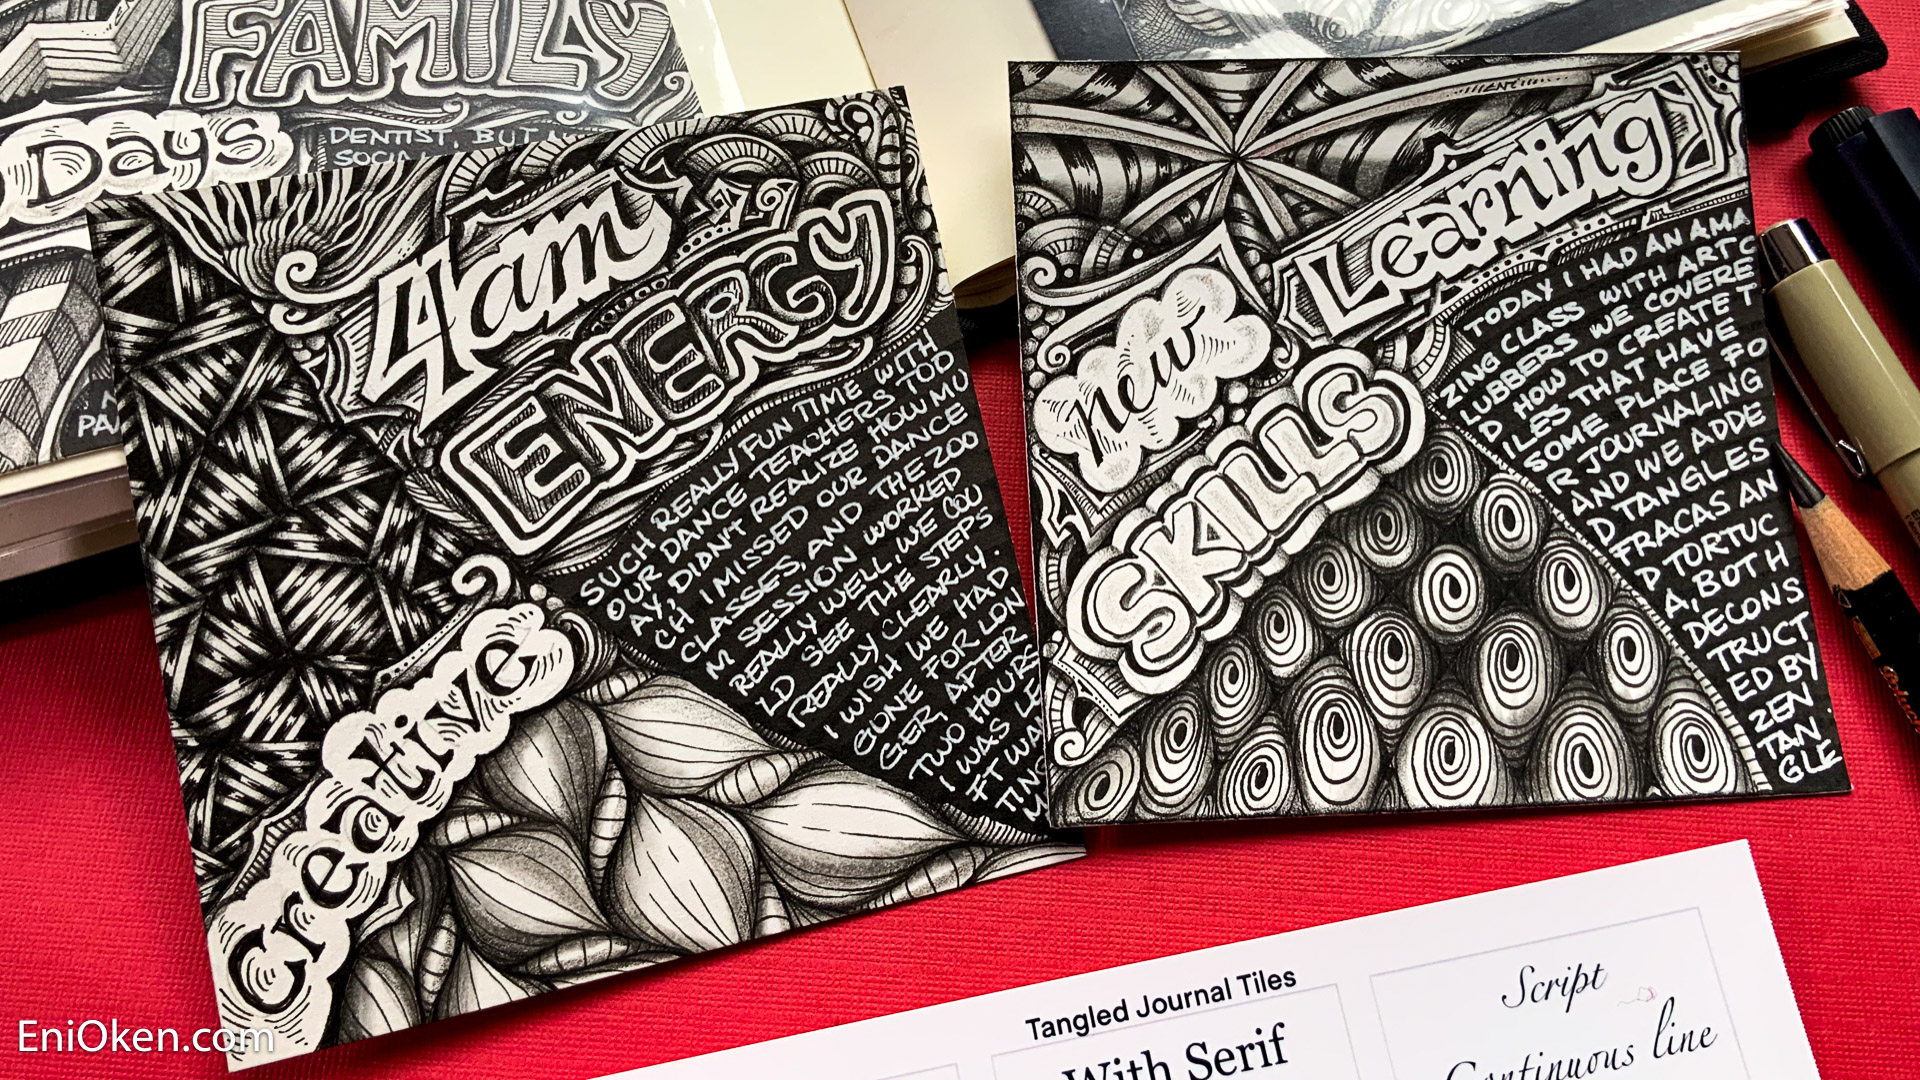 FAMILY
Days
DENTIST, BUT
SOCIAL
PA
4am
ENERGY
Creative
SUCH REALLY FUN TIME WITH
OUR DANCE TEACHERS TOD
AY, DIDN'T REALIZE HOW MU
CH I MISSED OUR DANCE
CLASSES, AND THE ZOO
M SESSION WORKED
REALLY WELL, WE COU
LD SEE THE STEPS
REALLY CLEARLY.
I WISH WE HAD
GONE FOR LON
GER, AFTER
TWO HOURS
I WAS LE
FT WAN
TING
M
Learning
new
SKILLS
TODAY I HAD AN AMA
ZING CLASS WITH ARTC
LUBBERS WE COVERE
D HOW TO CREATE T
ILES THAT HAVE
SOME PLACE FO
R JOURNALING
AND WE ADDE
D TANGLES
FRACAS AN
D TORTUC
A, BOTH
DECONS
TRUCT
ED BY
ZEN
TAN
GLE.
Tangled Journal Tiles
With Serif
Script
Continuous line
EniOken.com